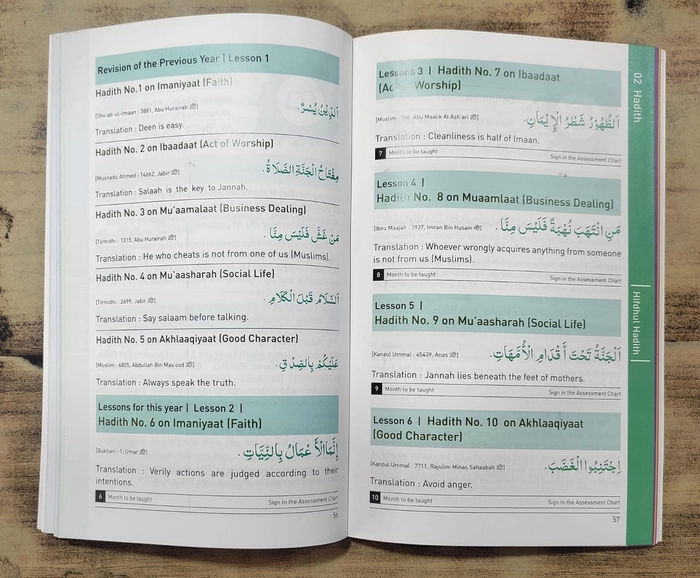 Revision of the Previous Year | Lesson 1
Hadith No.1 on Imaniyaat (Faith)
[Sho'ab-ul-Imaan : 3881, Abu Hurairah]
اَلدِّيْنُ يُسْرٌ.
Translation : Deen is easy.
Hadith No. 2 on Ibaadaat (Act of Worship)
[Musnadu Ahmed : 14662, Jabir]
مِفْتَاحُ الْجَنَّةِ الصَّلَاةُ.
Translation : Salaah is the key to Jannah.
Hadith No. 3 on Mu'aamalaat (Business Dealing)
[Tirmidhi : 1315, Abu Hurairah]
مَنْ غَشَّ فَلَيْسَ مِنَّا.
Translation : He who cheats is not from one of us (Muslims).
Hadith No. 4 on Mu'aasharah (Social Life)
[Tirmidhi : 2699, Jabir]
اَلسَّلَامُ قَبْلَ الْكَلَامِ.
Translation : Say salaam before talking.
Hadith No. 5 on Akhlaaqiyaat (Good Character)
[Muslim : 6805, Abdullah Bin Mas'ood]
عَلَيْكُمْ بِالصِّدْقِ.
Translation : Always speak the truth.
Lessons for this year | Lesson 2 |
Hadith No. 6 on Imaniyaat (Faith)
[Bukhari : 1, Umar]
إِنَّمَا الْأَعْمَالُ بِالنِّيَّاتِ.
Translation : Verily actions are judged according to their
intentions.
6 Month to be taught Sign in the Assessment Chart
56
Lesson 3 | Hadith No. 7 on Ibaadaat
(Act of Worship)
[Muslim : 556, Abu Maalik Al Ash'ari]
اَلطُّهُوْرُ شَطْرُ الْإِيْمَانِ.
Translation : Cleanliness is half of Imaan.
7 Month to be taught Sign in the Assessment Chart
Lesson 4 |
Hadith No. 8 on Muaamlaat (Business Dealing)
[Ibnu Maajah : 3937, Imran Bin Husain]
مَنِ انْتَهَبَ نُهْبَةً فَلَيْسَ مِنَّا.
Translation : Whoever wrongly acquires anything from someone
is not from us (Muslims).
8 Month to be taught Sign in the Assessment Chart
Lesson 5 |
Hadith No. 9 on Mu'aasharah (Social Life)
[Kanzul Ummal : 45439, Anas]
اَلْجَنَّةُ تَحْتَ أَقْدَامِ الْأُمَّهَاتِ.
Translation : Jannah lies beneath the feet of mothers.
9 Month to be taught Sign in the Assessment Chart
Lesson 6 | Hadith No. 10 on Akhlaaqiyaat
(Good Character)
[Kanzul Ummal : 7711, Rajulim Minas Sahaabah]
اِجْتَنِبُوا الْغَضَبَ.
Translation : Avoid anger.
10 Month to be taught Sign in the Assessment Chart
57
02 Hadith
Hifdhul Hadith